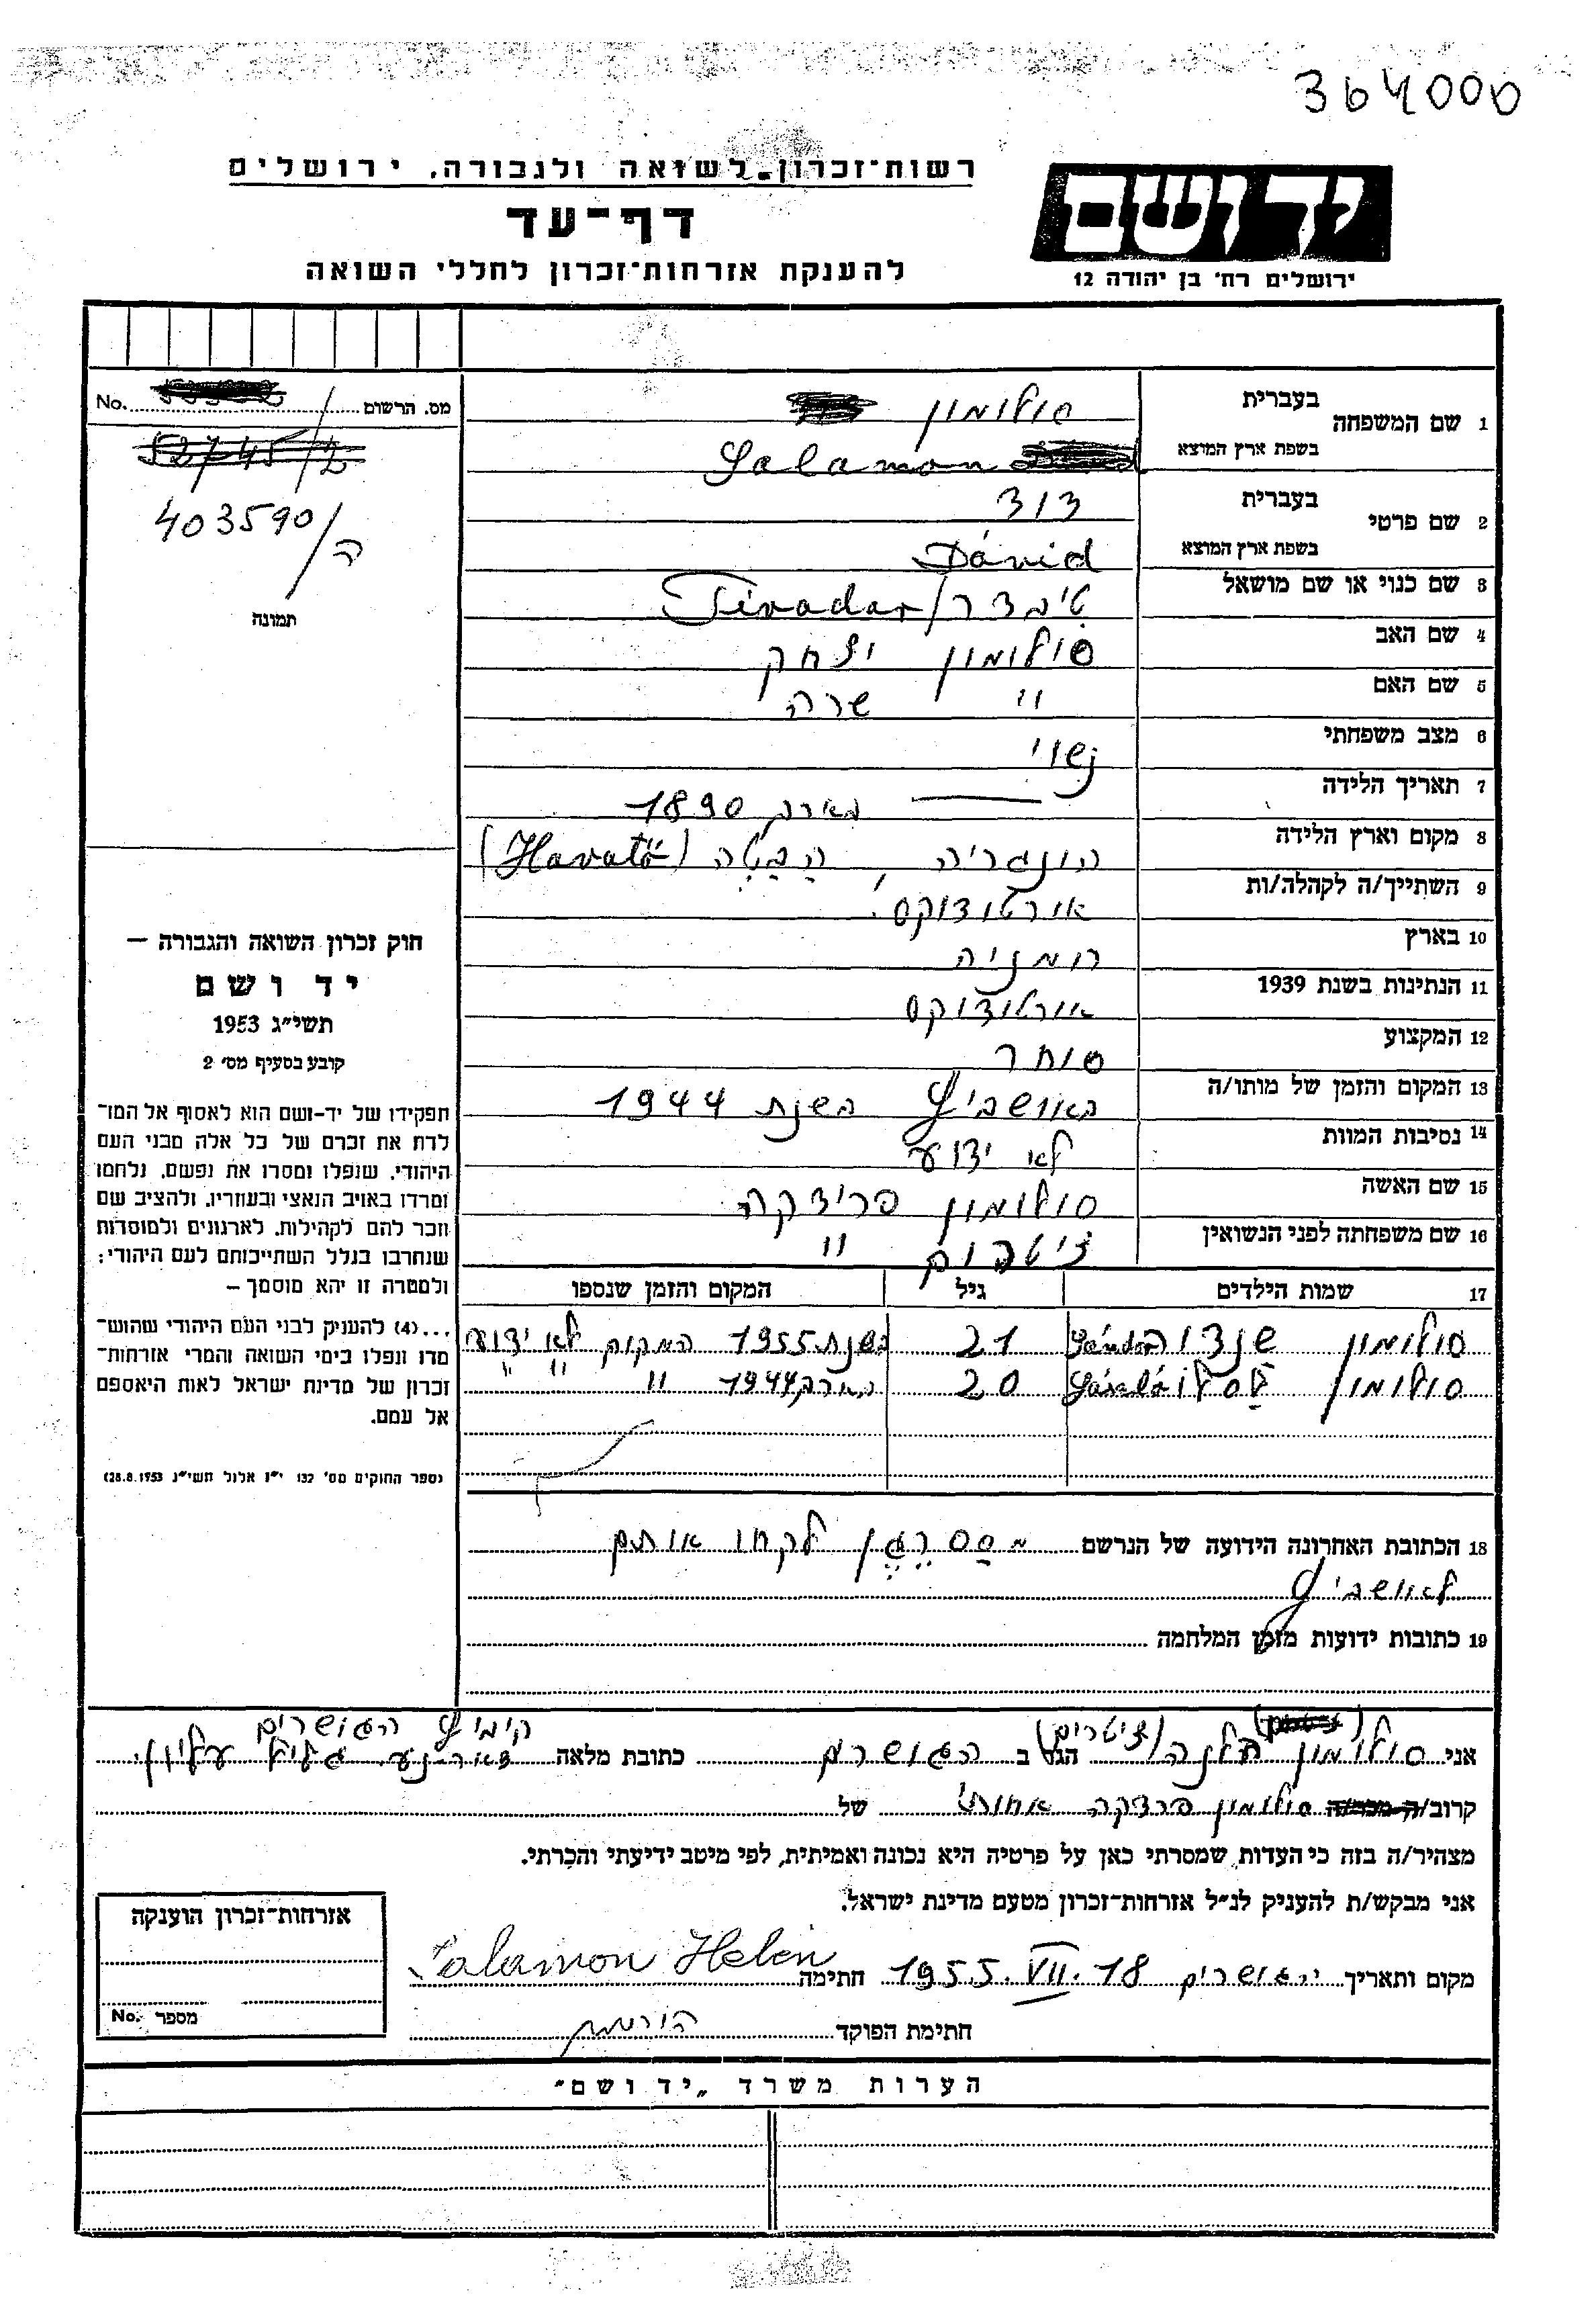 364000
רשות־זכרון לשואה ולגבורה, ירושלים
דף־עד
להענקת אזרחות־זכרון לחללי השואה
יד ושם
ירושלים רח' בן יהודה 12
מס. הרשום No.
52745/2
403590/ה
תמונה
1 שם המשפחה
בעברית סולומון
בשפת ארץ המוצא Salamon
2 שם פרטי
בעברית דוד
בשפת ארץ המוצא Dávid
3 שם כנוי או שם מושאל טיבדר/Tivadar
4 שם האב סולומון יצחק
5 שם האם " שרה
6 מצב משפחתי נשוי
7 תאריך הלידה בערך 1890
8 מקום וארץ הלידה הונגריה, הַבַטָה (Havató)
9 השתייך/ה לקהלה/ות אורטודוקס.
10 בארץ רומניה
11 הנתינות בשנת 1939 אורטודוקס
12 המקצוע סוחר
13 המקום והזמן של מותו/ה באושביץ בשנת 1944
14 נסיבות המוות לא ידוע
15 שם האשה סולומון פרידקה
16 שם משפחתה לפני הנשואין ציטרום "
17 שמות הילדים גיל המקום והזמן שנספו
סולומון שנדור Sándor 21 בשנת 1955 המקום לא ידוע
סולומון לסלו László 20 בערך 1944 " " "
18 הכתובת האחרונה הידועה של הנרשם מסַרֶגֶן לקחו אותם
לאושביץ
19 כתובות ידועות מזמן המלחמה
חוק זכרון השואה והגבורה –
יד ושם
תשי"ג 1953
קובע בסעיף מס' 2
תפקידו של יד-ושם הוא לאסוף אל המו־
לדת את זכרם של כל אלה מבני העם
היהודי, שנפלו ומסרו את נפשם, נלחמו
ומרדו באויב הנאצי ובעוזריו, ולהציב שם
וזכר להם לקהילות, לארגונים ולמוסדות
שנחרבו בגלל השתייכותם לעם היהודי;
ולמטרה זו יהא מוסמך –
...(4) להענק לבני העם היהודי שהוש־
מדו ונפלו בימי השואה והמרי אזרחות־
זכרון של מדינת ישראל לאות היאספם
אל עמם.
(ספר החוקים מס' 132 י"ז אלול תשי"ג 28.8.1953)
אני סולומון הלנה (ציטרום) הגר ב הגושרם כתובת מלאה קיבוץ הגושרים דאר נע גליל עליון
קרוב/ה מכר/ה סולומון פרדקה אחותי של
מצהיר/ה בזה כי העדות שמסרתי כאן על פרטיה היא נכונה ואמיתית, לפי מיטב ידיעתי והכרתי.
אני מבקש/ת להעניק לנ"ל אזרחות־זכרון מטעם מדינת ישראל.
מקום ותאריך הגושרים 1955.VII.18 חתימה Salamon Helén
חתימת הפוקד
אזרחות־זכרון הוענקה
מספר No.
הערות משרד „יד ושם"